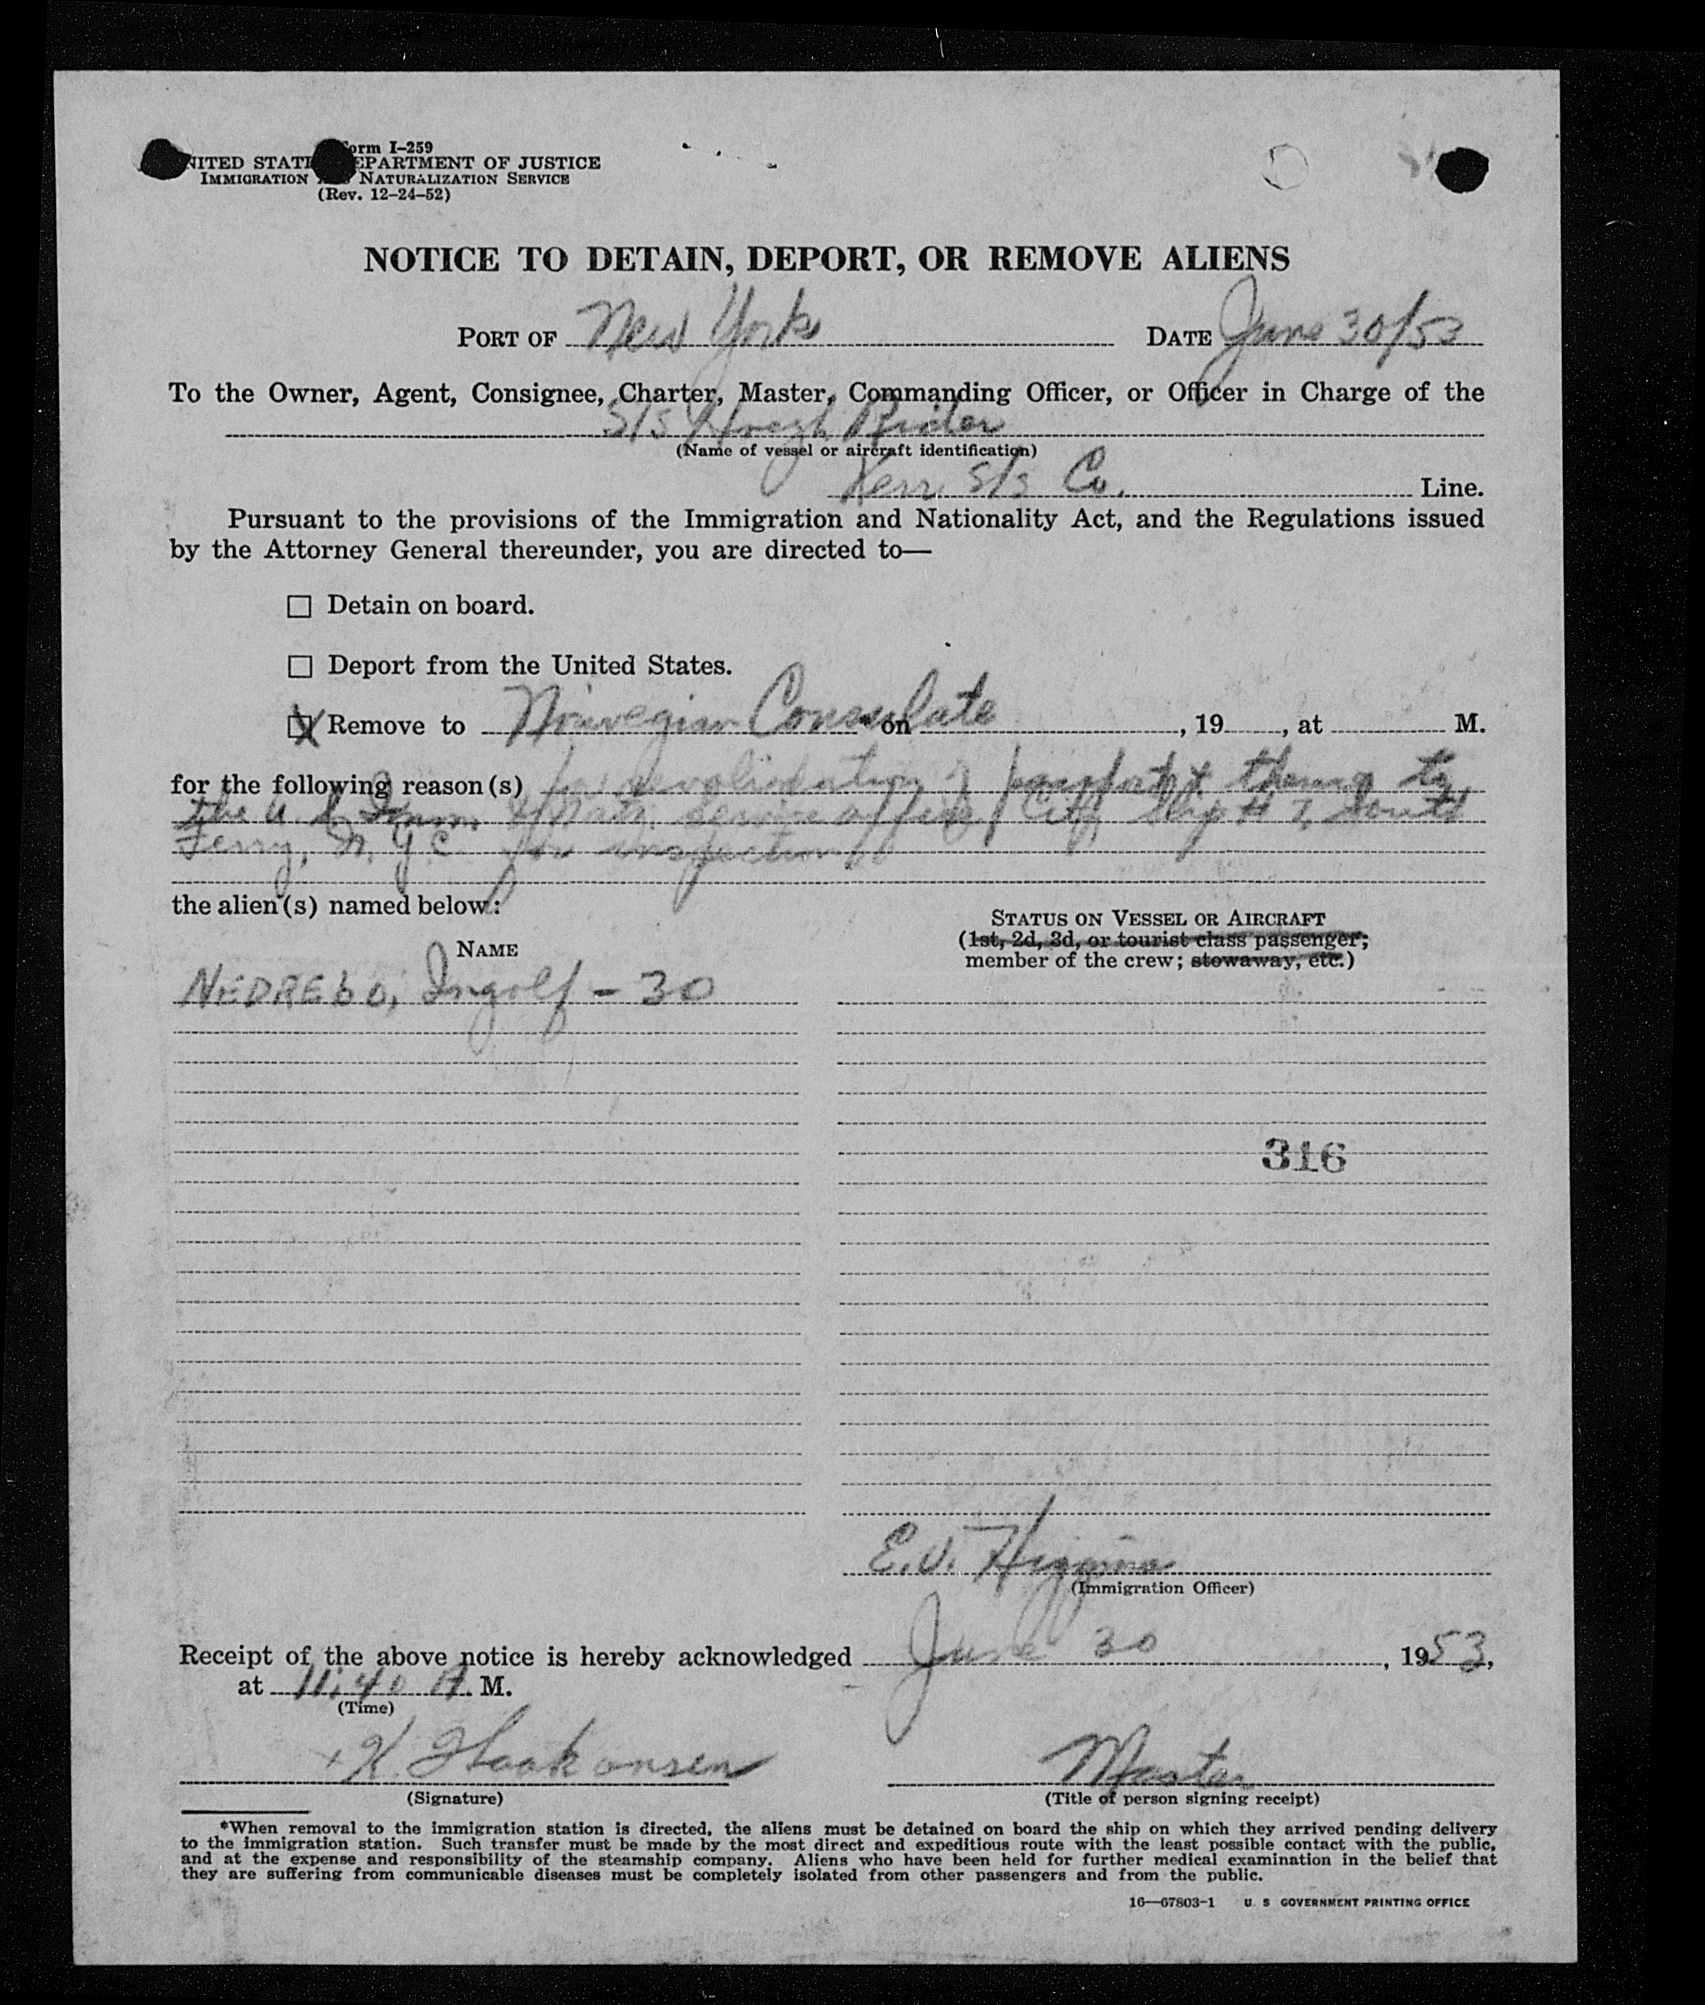 Form I-259
UNITED STATES DEPARTMENT OF JUSTICE
IMMIGRATION AND NATURALIZATION SERVICE
(Rev. 12-24-52)
NOTICE TO DETAIN, DEPORT, OR REMOVE ALIENS
PORT OF New York DATE June 30/53
To the Owner, Agent, Consignee, Charter, Master, Commanding Officer, or Officer in Charge of the
S/S Hoegh
(Name of vessel or aircraft identification)
Kerr S/S Co. Line.
Pursuant to the provisions of the Immigration and Nationality Act, and the Regulations issued
by the Attorney General thereunder, you are directed to—
☐ Detain on board.
☐ Deport from the United States.
☒ Remove to Norwegian Consulate * on , 19 , at M.
for the following reason(s) for revalidation of passport & thence to
the U.S. Imm. & Natz. Service office, City, Slip # 7, South
Ferry, N.Y.C. for inspection
the alien(s) named below:
NAME
STATUS ON VESSEL OR AIRCRAFT
(1st, 2d, 3d, or tourist class passenger;
member of the crew; stowaway, etc.)
NEDREbO, Ingolf - 30
316
E.V. Higgins
(Immigration Officer)
Receipt of the above notice is hereby acknowledged June 30, 1953,
at 11:40 A. M.
(Time)
x K. Haakonsen
(Signature)
Master
(Title of person signing receipt)
*When removal to the immigration station is directed, the aliens must be detained on board the ship on which they arrived pending delivery
to the immigration station. Such transfer must be made by the most direct and expeditious route with the least possible contact with the public,
and at the expense and responsibility of the steamship company. Aliens who have been held for further medical examination in the belief that
they are suffering from communicable diseases must be completely isolated from other passengers and from the public.
16—67803-1 U. S GOVERNMENT PRINTING OFFICE